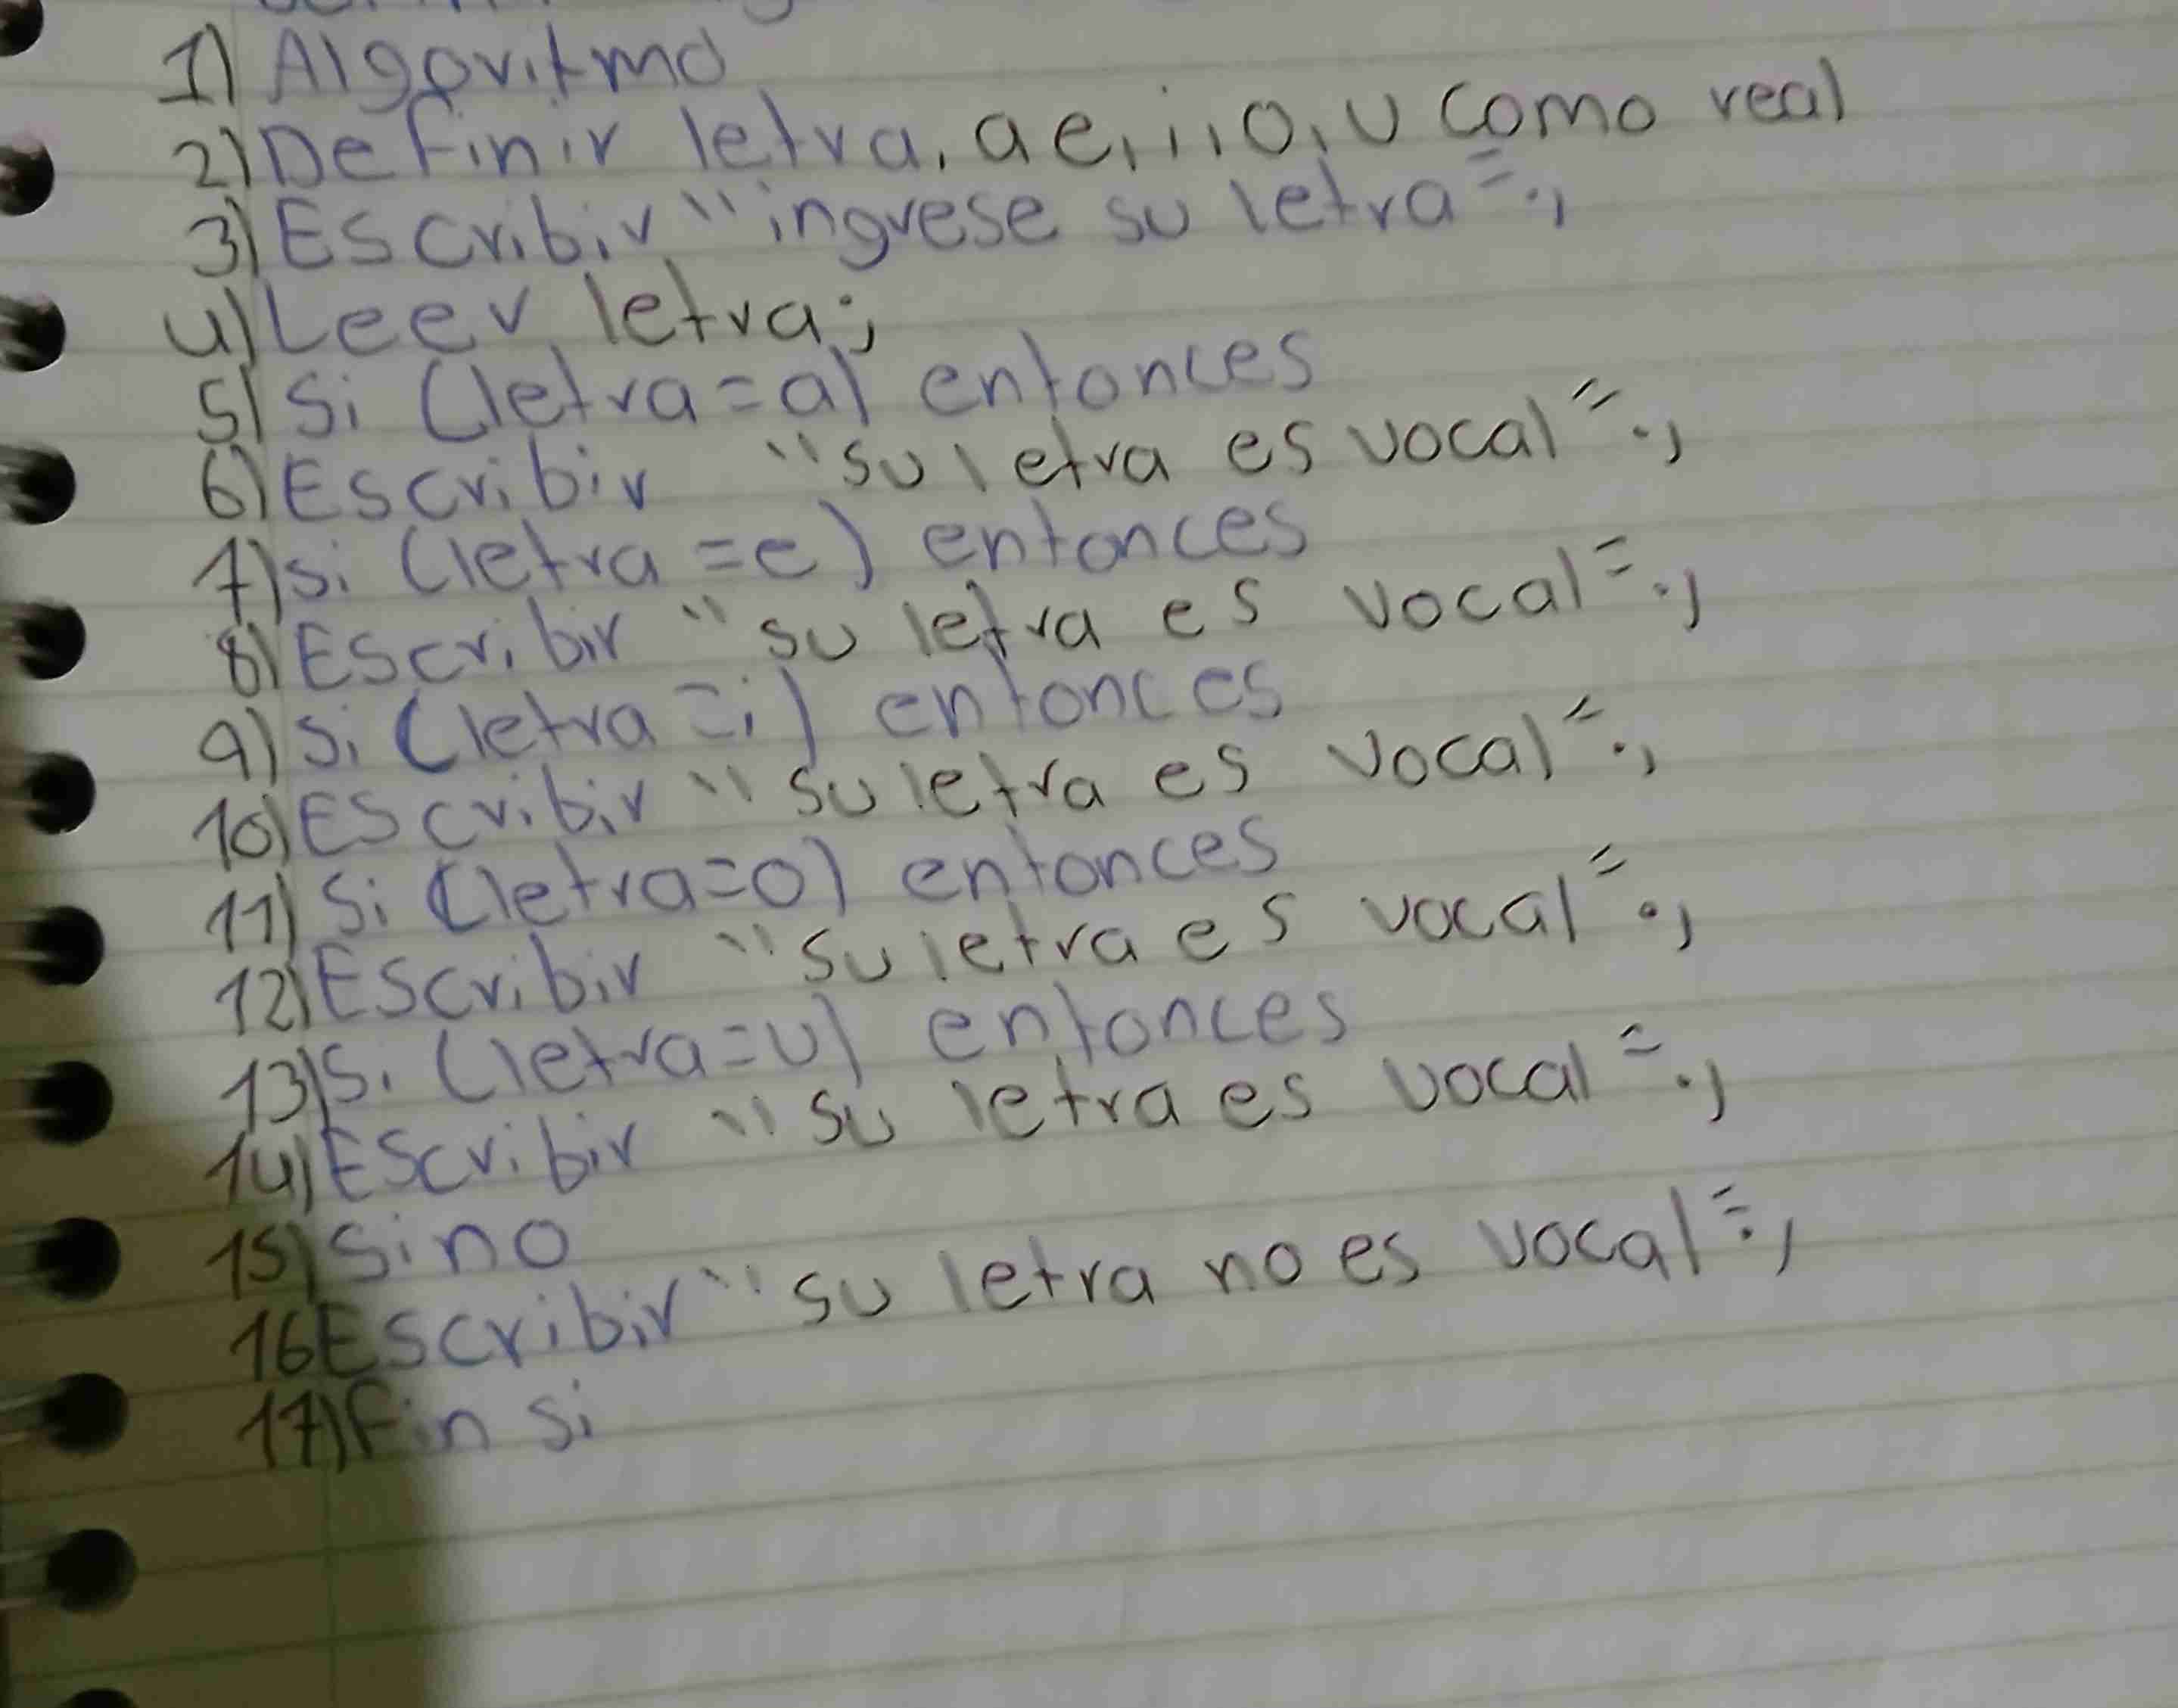 1) Algoritmo
2) Definir letra, a e, i, o, u como real
3) Escribir "ingrese su letra";
4) Leer letra;
5) Si (letra=a) entonces
6) Escribir "su letra es vocal";
7) si (letra =e) entonces
8) Escribir "su letra es vocal";
9) Si (letra =i) entonces
10) Escribir "su letra es vocal";
11) Si (letra=o) entonces
12) Escribir "su letra es vocal";
13) Si (letra=u) entonces
14) Escribir "su letra es vocal";
15) Sino
16 Escribir "su letra no es vocal";
17) Fin si